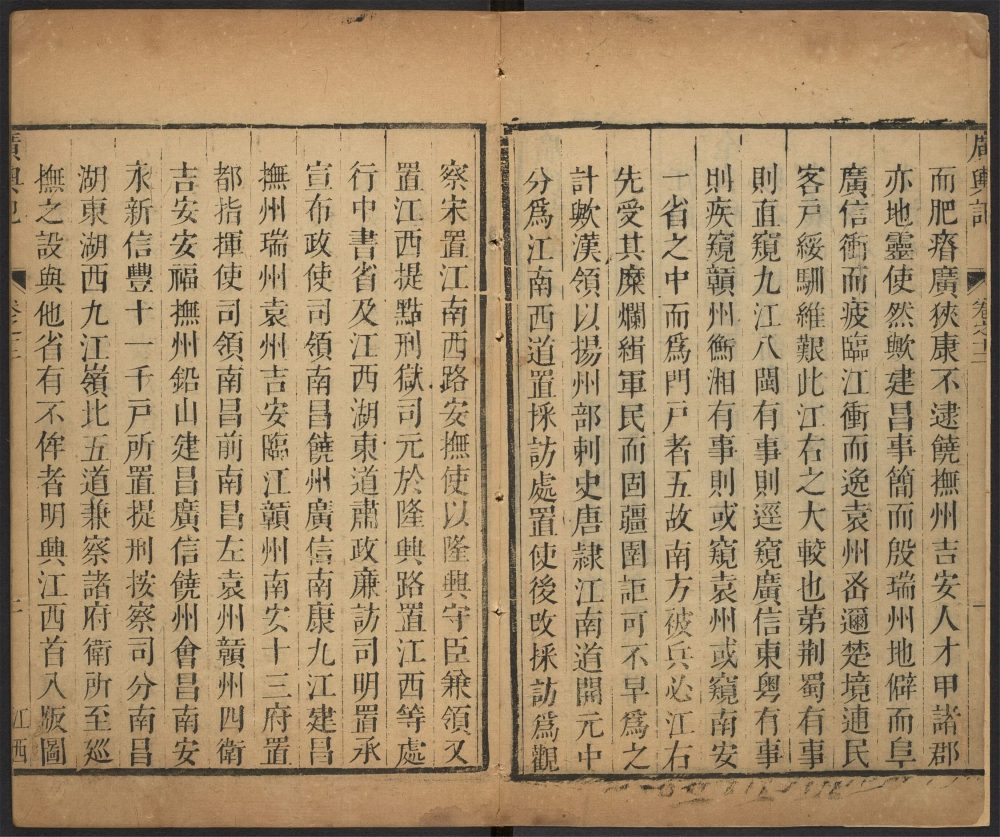 廣輿記
卷之十二
一
而肥瘠廣狹康不逮饒撫州吉安人才甲諸郡
亦地靈使然歟建昌事簡而殷瑞州地僻而阜
廣信衝而疲臨江衝而逸袁州峦邇楚境逋民
客戸綏馴維艱此江右之大較也第荆蜀有事
則直窺九江八閩有事則逕窺廣信東粤有事
則疾窺贛州衡湘有事則或窺袁州或窺南安
一省之中而爲門戸者五故南方彼兵必江右
先受其糜爛緝軍民而固疆圉詎可不早爲之
計歟漢領以揚州部刺史唐隷江南道開元中
分爲江南西道置採訪處置使後改採訪爲觀
察宋置江南西路安撫使以隆興守臣兼領又
置江西提點刑獄司元於隆興路置江西等處
行中書省及江西湖東道肅政廉訪司明置承
宣布政使司領南昌饒州廣信南康九江建昌
撫州瑞州袁州吉安臨江贛州南安十三府置
都指揮使司領南昌前南昌左袁州贛州四衛
吉安安福撫州鉛山建昌廣信饒州會昌南安
永新信豐十一千戸所置提刑按察司分南昌
湖東湖西九江嶺北五道兼察諸府衛所至巡
撫之設與他省有不侔者明興江西首入版圖
廣輿記
江西